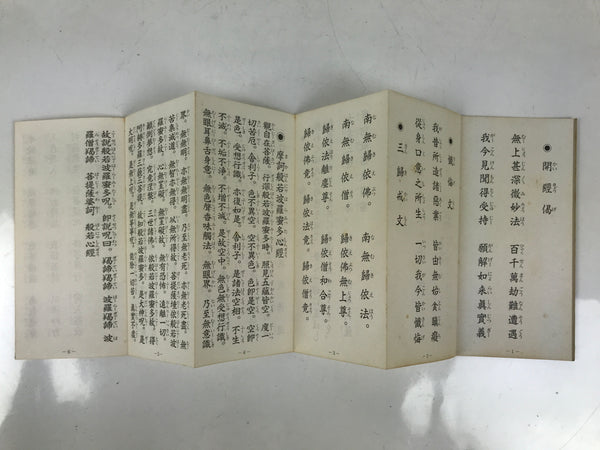 ● 開經偈
無上甚深微妙法 百千萬劫難遭遇
我今見聞得受持 願解如來眞實義
-1-
● 懺悔文
我昔所造諸惡業 皆由無始貪瞋癡
從身口意之所生 一切我今皆懺悔
● 三歸戒文
-2-
南無歸依佛。 南無歸依法。
南無歸依僧。 歸依佛無上尊。
歸依法離塵尊。 歸依僧和合尊。
歸依佛竟。 歸依法竟。 歸依僧竟。
-3-
● 摩訶般若波羅蜜多心經
觀自在菩薩。行深般若波羅蜜多時。照見五蘊皆空。度一
切苦厄。舍利子。色不異空。空不異色。色即是空。空即
是色。受想行識。亦復如是。舍利子。是諸法空相。不生
不滅。不垢不淨。不增不減。是故空中。無色無受想行識。
無眼耳鼻舌身意。無色聲香味觸法。無眼界。乃至無意識
-4-
界。無無明。亦無無明盡。乃至無老死。亦無老死盡。無
苦集滅道。無智亦無得。以無所得故。菩提薩埵依般若波
羅蜜多故。心無罣礙。無罣礙故。無有恐怖。遠離一切。
顚倒夢想。究竟涅槃。三世諸佛。依般若波羅蜜多故。得
阿耨多羅三藐三菩提。故知般若波羅蜜多。是大神呪。是
大明呪。是無上呪。是無等等呪。能除一切苦。眞實不虛。
-5-
故說般若波羅蜜多呪。即說呪曰。羯諦羯諦 波羅羯諦 波
羅僧羯諦 菩提薩婆訶 般若心經
-6-